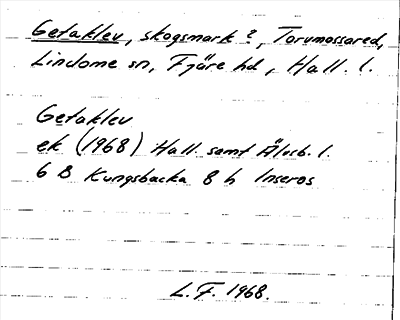 Getaklev, skogsmark?, Torvmossared,
Lindome sn, Fjäre hd, Hall. l.
Getaklev
ek (1968) Hall. samt Älvsb. l.
6 B Kungsbacka 8 h Inseros
L.F. 1968.